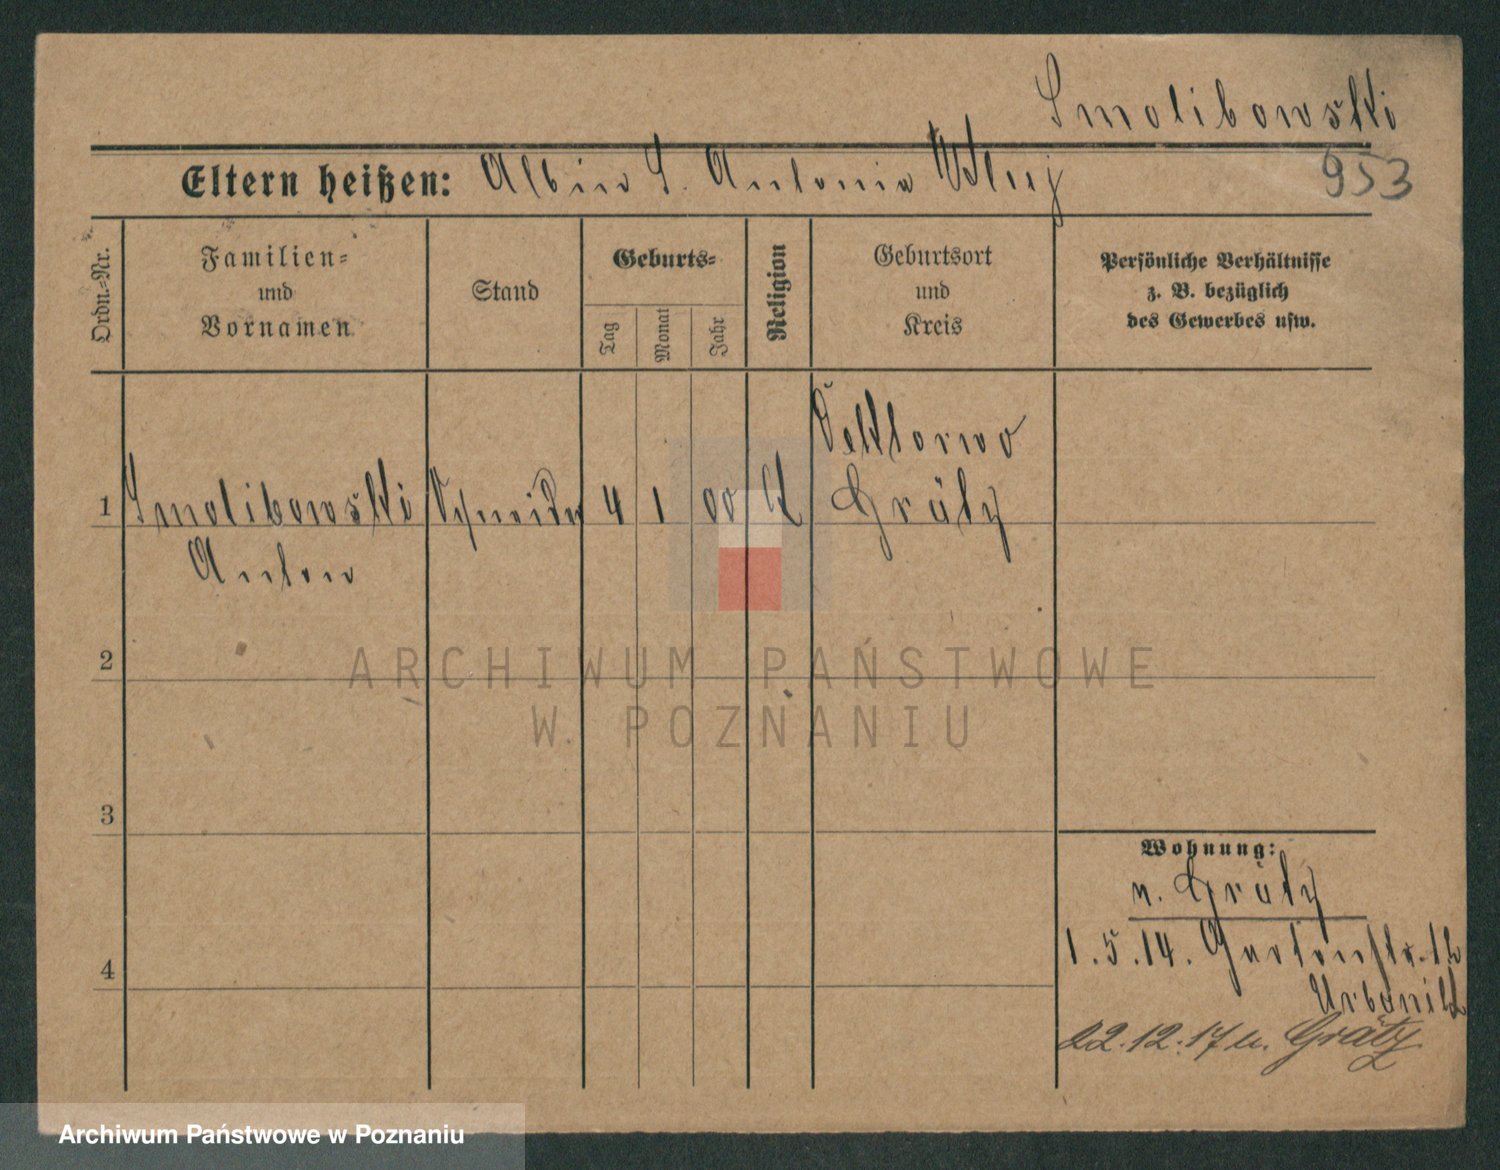 Smolibowski
953
Eltern heißen: Albin S. Antonia
Ordn.-Nr.
Familien-
und
Vornamen
Stand
Geburts-
Tag
Monat
Jahr
Religion
Geburtsort
und
Kreis
Persönliche Verhältnisse
z. B. bezüglich
des Gewerbes usw.
1 Smolibowski Schneider 4 1 00 K
Anton
Grätz
2
3
4
Wohnung:
n. Grätz
1.5.14. Gartenstr. 12
22.12.17 n. Grätz
ARCHIWUM PAŃSTWOWE
W POZNANIU
Archiwum Państwowe w Poznaniu